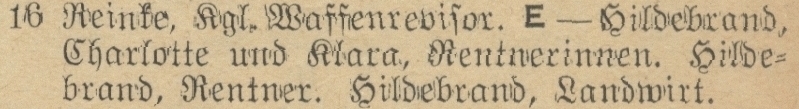 16 Reinke, Kgl. Waffenrevisor. E — Hildebrand,
Charlotte und Klara, Rentnerinnen. Hilde-
brand, Rentner. Hildebrand, Landwirt.